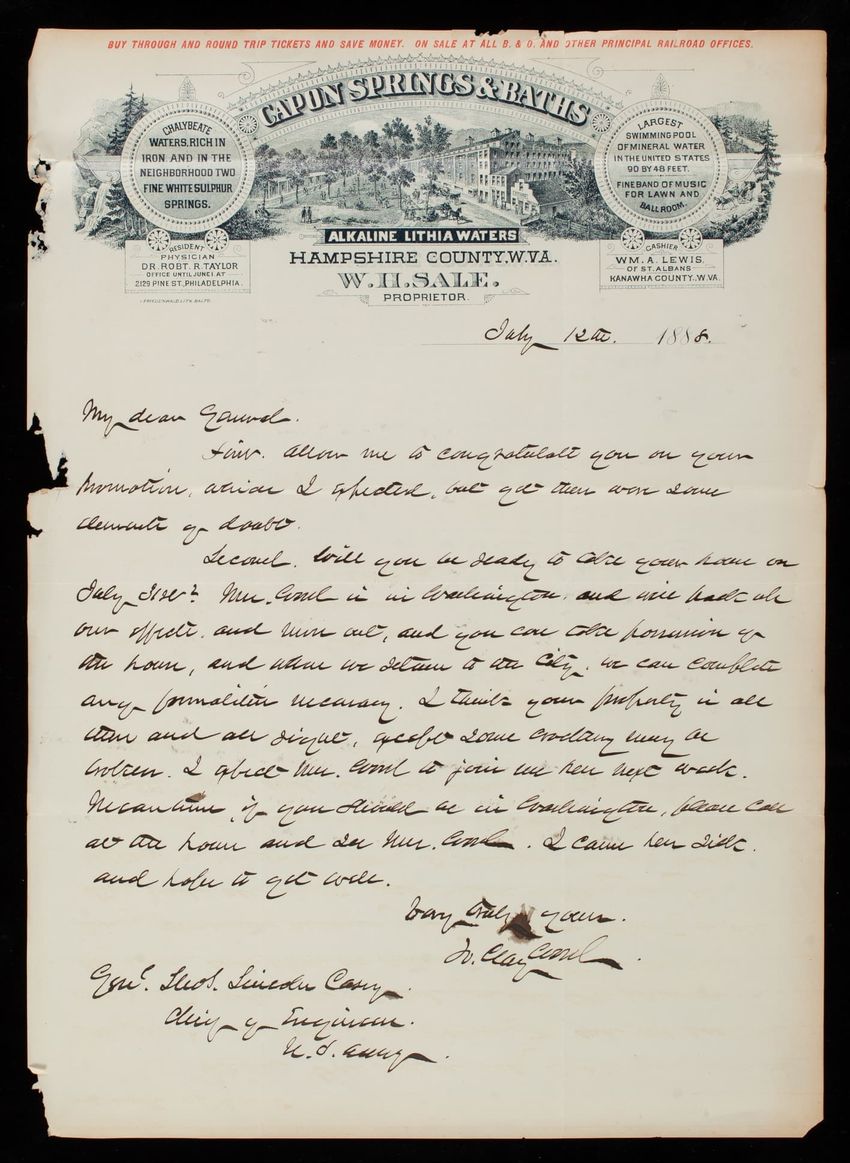 BUY THROUGH AND ROUND TRIP TICKETS AND SAVE MONEY. ON SALE AT ALL B. & O. AND OTHER PRINCIPAL RAILROAD OFFICES.
CAPON SPRINGS & BATHS
CHALYBEATE
WATERS, RICH IN
IRON AND IN THE
NEIGHBORHOOD TWO
FINE WHITE SULPHUR
SPRINGS.
LARGEST
SWIMMING POOL
OF MINERAL WATER
IN THE UNITED STATES
90 BY 48 FEET.
FINE BAND OF MUSIC
FOR LAWN AND
BALL ROOM
ALKALINE LITHIA WATERS
RESIDENT
PHYSICIAN
DR. ROBT. R. TAYLOR
OFFICE UNTIL JUNE 1 AT
2129 PINE ST., PHILADELPHIA.
HAMPSHIRE COUNTY, W. VA.
W. H. SALE.
PROPRIETOR
CASHIER
WM. A. LEWIS,
OF ST. ALBANS
KANAWHA COUNTY, W. VA.
A. FRIEDENWALD LITH. BALTO.
July 12th. 1888.
My dear General.
First. Allow me to congratulate you on your
promotion, which I expected, but yet there were some
elements of doubt.
Second. Will you be ready to take your house on
July 31st? Mrs. is in Washington. and will pack all
our effects. and move out, and you can take possession of
the house, and when we return to the City, we can complete
any formalities necessary. I think your property is all
there and all right, except some crockery may be
broken. I expect Mrs. to join me here next week.
Meantime, if you should be in Washington, please call
at the house and see Mrs. I came here sick.
and hope to get well.
Very truly yours.
Clay
Genl. Thos. Lincoln Casey.
Chief of Engineers.
U. S. Army.